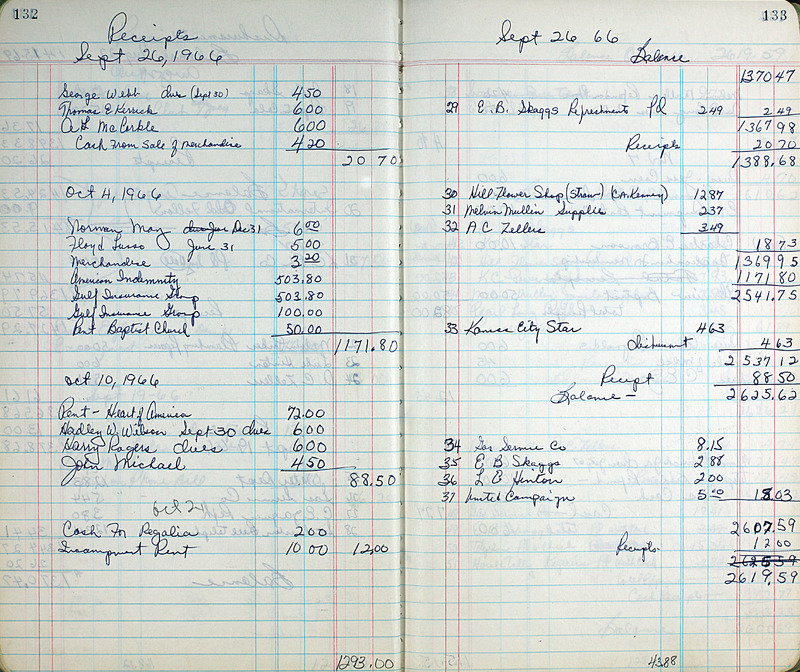 132
Receipts
Sept 26, 1966
George Webb dues (Sept 30) 4 50
Thomas E Kerrick 6 00
McCorkle 6 00
Cash From Sale of merchandise 4 20
20 70
Oct 4, 1966
Norman May dues Dec 31 6 00
Floyd Lusso June 31 5 00
Merchandise 3 20
American Indemnity 503.80
Gulf Insurance Group 503.80
Gulf Insurance Group 100.00
Rent Baptist Church 50.00
1171.80
Oct 10, 1966
Rent - Heart of America 72.00
Hadley W. Wilson Sept 30 dues 6 00
Harry Rogers dues 6 00
John Michael 4 50
88.50
Oct 24
Cash For Regalia 2 00
Incampment Rent 10 00 12.00
1293.00
133
Sept 26 66
Balance
1370 47
29 E. B. Skaggs Refreshments Pd 2 49 2 49
1367 98
Receipts 20 70
1388.68
30 Hill Flower Shop (Straw) (CM Kenney) 12 87
31 Melvin Mullin Supplies 2 37
32 A C Zellers 3 49
18 73
1369 95
1171 80
2541.75
33 Kansas City Star 4 63
disbursment 4 63
2537 12
Receipt 88 50
Balance - 2625.62
34 Gas Service Co 8.15
35 E B Skaggs 2 88
36 L E Hinton 2 00
37 United Campaign 5 00 18.03
2607.59
Receipts 12 00
2619.59
43.88